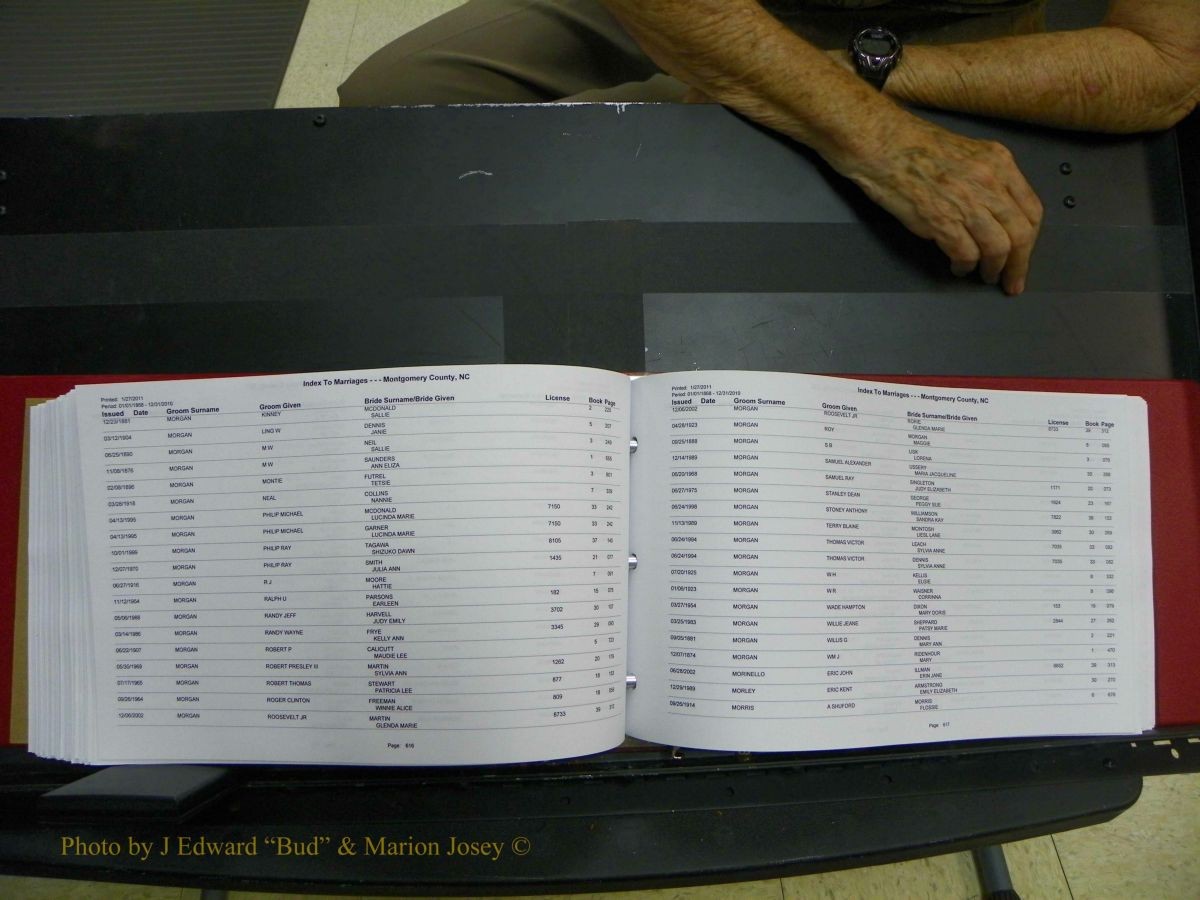 Index To Marriages - - - Montgomery County, NC
Printed: 1/27/2011
Period: 01/01/1868 - 12/31/2010
Issued Date Groom Surname Groom Given Bride Surname/Bride Given License Book Page
12/23/1881 MORGAN KINNEY MCDONALD 2 225
SALLIE
03/12/1904 MORGAN LING W DENNIS 5 207
JANIE
06/25/1890 MORGAN M W NEIL 3 249
SALLIE
11/08/1876 MORGAN M W SAUNDERS 1 555
ANN ELIZA
02/08/1896 MORGAN MONTIE FUTREL 3 601
TETSIE
03/26/1918 MORGAN NEAL COLLINS 7 339
NANNIE
04/13/1995 MORGAN PHILIP MICHAEL MCDONALD 7150 33 242
LUCINDA MARIE
04/13/1995 MORGAN PHILIP MICHAEL GARNER 7150 33 242
LUCINDA MARIE
10/01/1999 MORGAN PHILIP RAY TAGAWA 8105 37 145
SHIZUKO DAWN
12/07/1970 MORGAN PHILIP RAY SMITH 1435 21 077
JULIA ANN
06/27/1916 MORGAN R J MOORE 7 091
HATTIE
11/12/1964 MORGAN RALPH U PARSONS 182 15 025
EARLEEN
05/06/1988 MORGAN RANDY JEFF HARVELL 3702 30 107
JUDY EMILY
03/14/1986 MORGAN RANDY WAYNE FRYE 3345 29 090
KELLY ANN
06/22/1907 MORGAN ROBERT P CALICUTT 5 723
MAUDIE LEE
05/30/1969 MORGAN ROBERT PRESLEY III MARTIN 1262 20 179
SYLVIA ANN
07/17/1965 MORGAN ROBERT THOMAS STEWART 877 18 132
PATRICIA LEE
09/26/1964 MORGAN ROGER CLINTON FREEMAN 809 18 058
WINNIE ALICE
12/06/2002 MORGAN ROOSEVELT JR MARTIN 8733 39 312
GLENDA MARIE
Page: 616
Index To Marriages - - - Montgomery County, NC
Printed: 1/27/2011
Period: 01/01/1868 - 12/31/2010
Issued Date Groom Surname Groom Given Bride Surname/Bride Given License Book Page
12/06/2002 MORGAN ROOSEVELT JR 8733 39 312
GLENDA MARIE
04/28/1923 MORGAN ROY MORGAN 8 085
MAGGIE
09/25/1888 MORGAN S B USK 3 076
LORENA
12/14/1989 MORGAN SAMUEL ALEXANDER USSERY 30 268
MARIA JACQUELINE
06/20/1968 MORGAN SAMUEL RAY SINGLETON 1171 20 073
JUDY ELIZABETH
06/27/1975 MORGAN STANLEY DEAN GEORGE 1924 23 167
PEGGY SUE
06/24/1998 MORGAN STONEY ANTHONY WILLIAMSON 7822 36 153
SANDRA KAY
11/13/1989 MORGAN TERRY BLAINE MCINTOSH 3962 30 269
LIESL LANE
06/24/1994 MORGAN THOMAS VICTOR LEACH 7035 33 082
SYLVIA ANNE
06/24/1994 MORGAN THOMAS VICTOR DENNIS 7035 33 082
SYLVIA ANNE
07/20/1925 MORGAN W H KELLIS 8 332
ELSIE
01/06/1923 MORGAN W R WAISNER 8 086
CORRINNA
03/27/1954 MORGAN WADE HAMPTON DIXON 153 15 079
MARY DORIS
03/25/1983 MORGAN WILLIE JEANE SHEPPARD 2844 27 262
PATSY MARIE
09/05/1881 MORGAN WILLIS G DENNIS 2 221
MARY ANN
12/07/1874 MORGAN WM J RIDENHOUR 1 470
MARY
06/28/2002 MORINELLO ERIC JOHN ILLMAN 8652 39 313
ERIN JANE
12/29/1989 MORLEY ERIC KENT ARMSTRONG 30 270
EMILY ELIZABETH
09/26/1914 MORRIS A SHUFORD MORRIS 6 676
FLOSSIE
Page: 617
Photo by J Edward “Bud” & Marion Josey ©